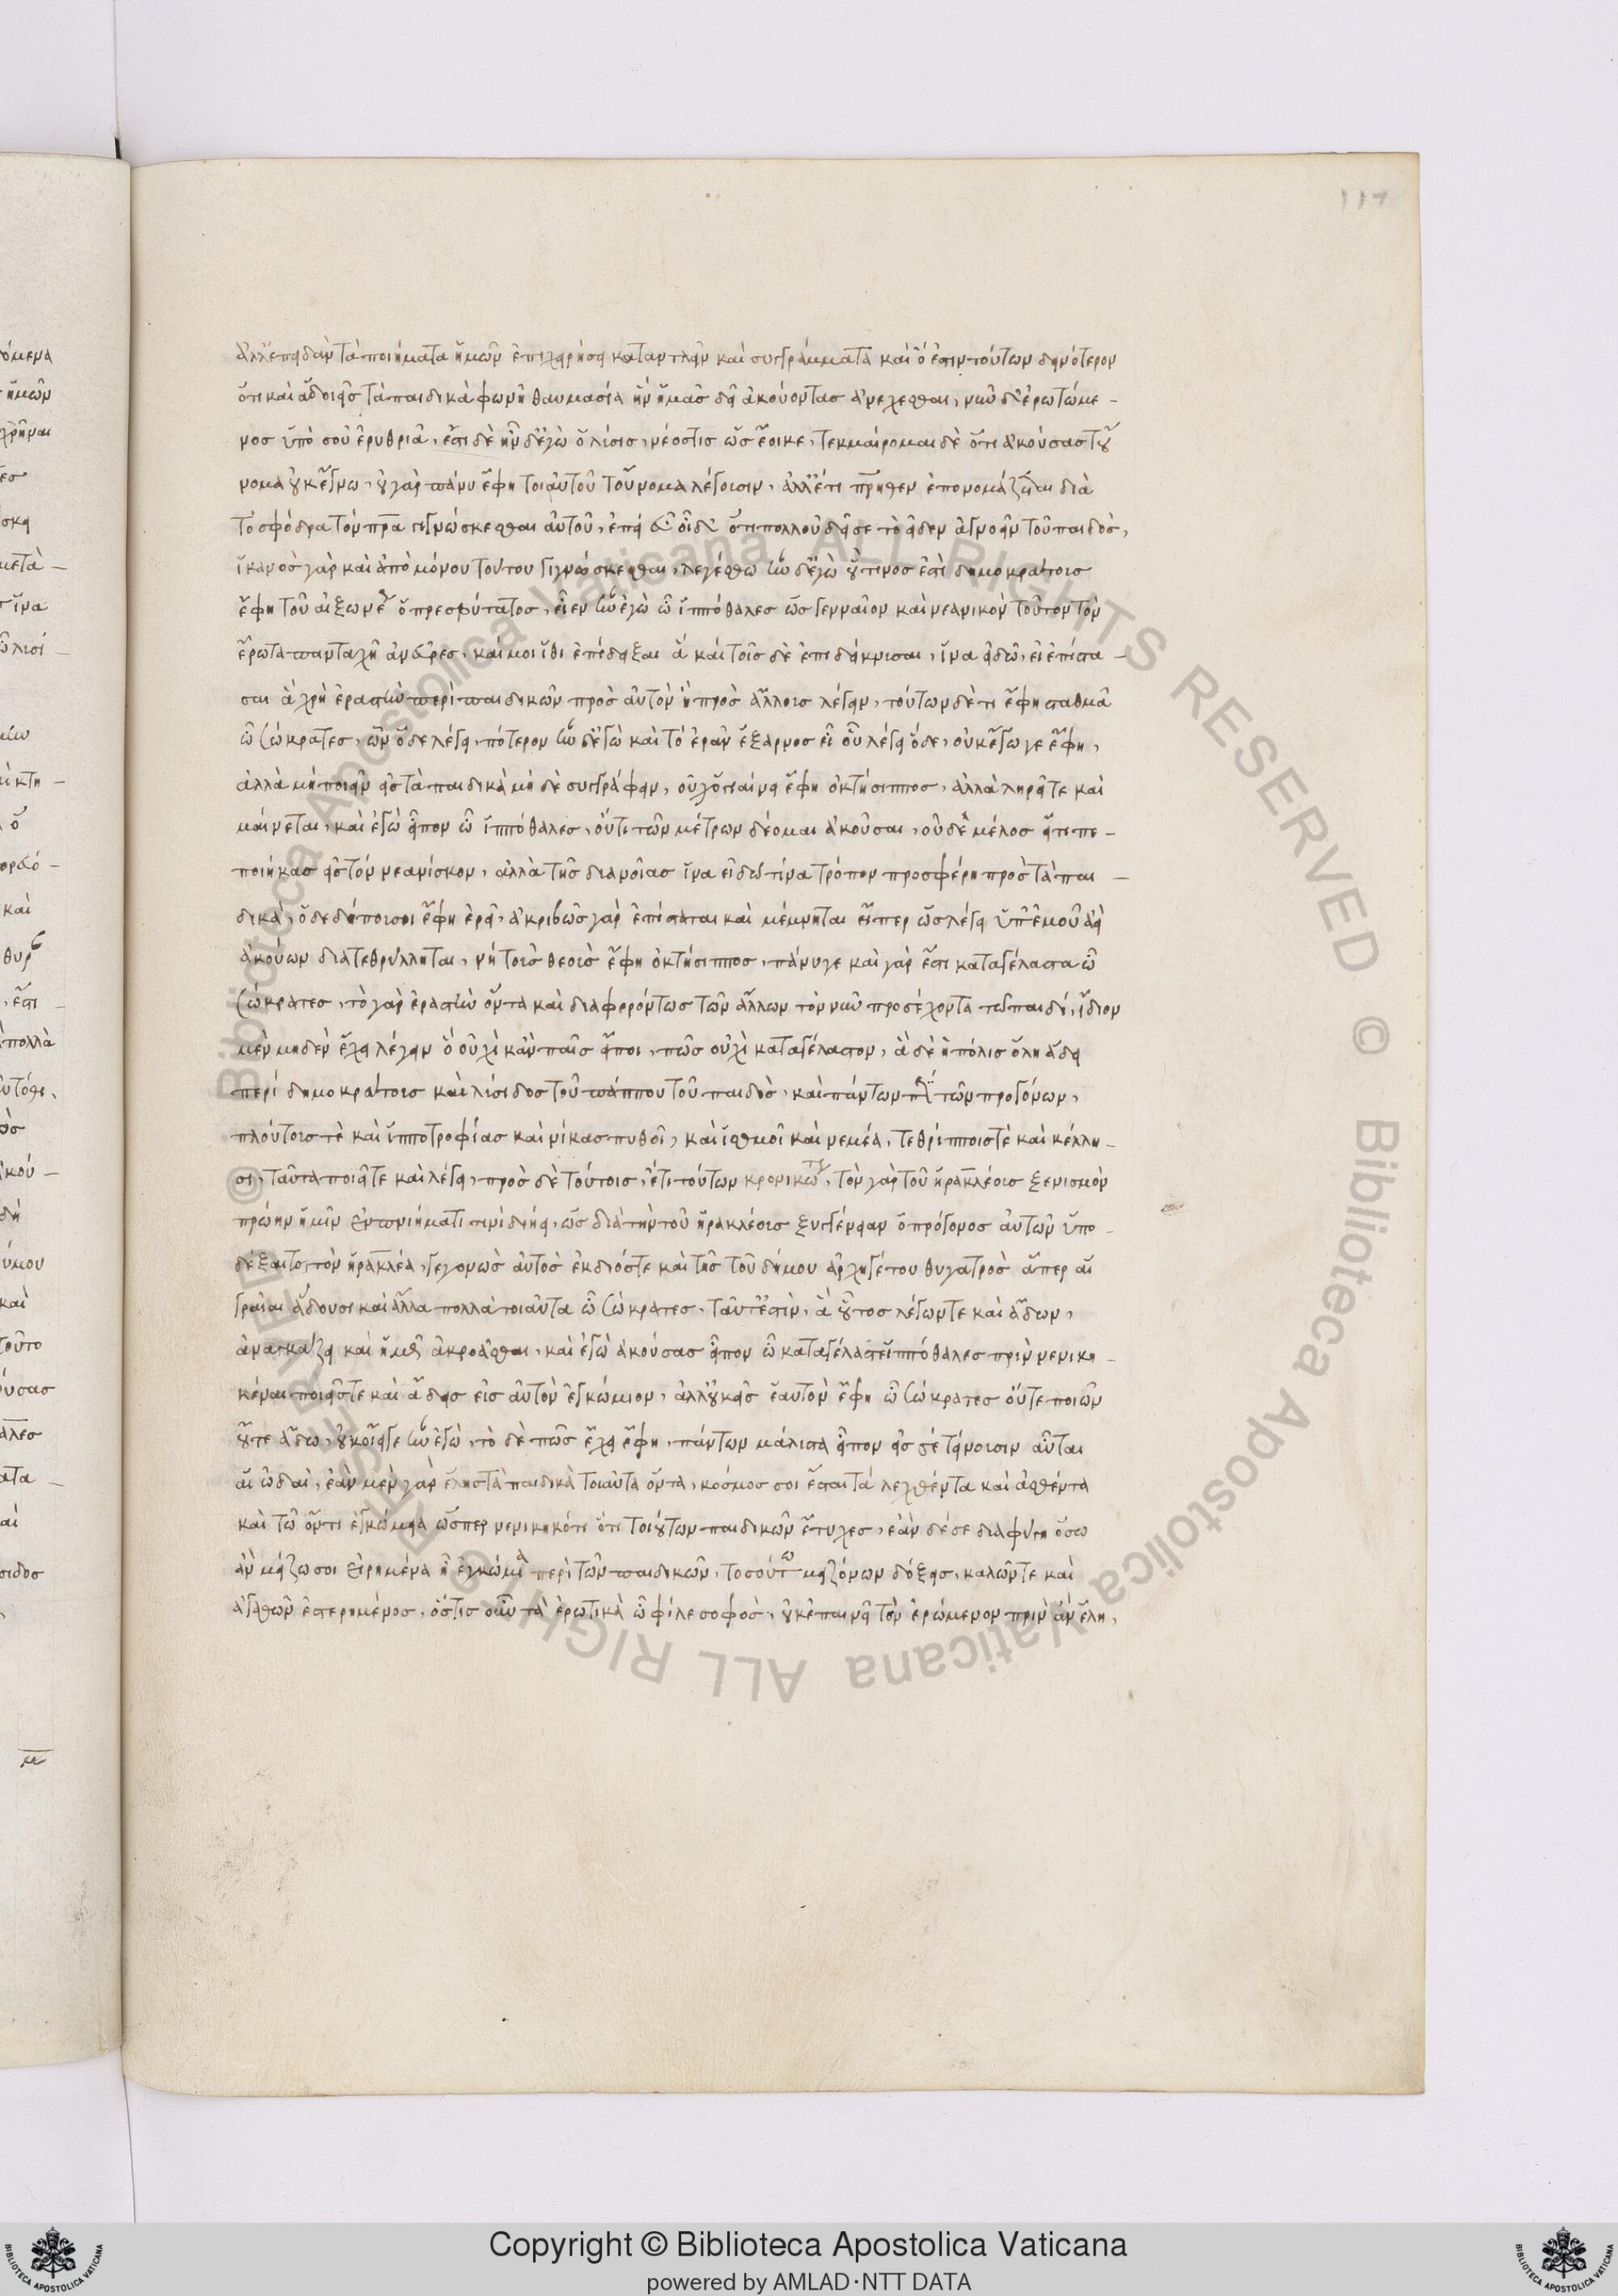 117
ἀλλ' ἐπειδὰν τὰ ποιήματα ἡμῶν ἐπιχειρήσει καταντλεῖν καὶ συγγράμματα καὶ ὅ ἐστιν τούτων δεινότερον
ὅτι καὶ ἄδει εἰς τὰ παιδικὰ φωνῇ θαυμασίᾳ ἣν ἡμᾶς δεῖ ἀκούοντας ἀνέχεσθαι, νῦν δὲ ἐρωτώμε –
νος ὑπό σου ἐρυθριᾷ, ἔστι δὲ ἦν δ' ἐγὼ ὁ λίσις, νέος τις ὡς ἔοικε, τεκμαίρομαι δὲ ὅτι ἀκούσας τοὔ
νομα οὐκ ἔγνω, οὐ γὰρ πάνυ ἔφη τὸ αὐτοῦ τοὔνομα λέγουσιν, ἀλλ' ἔτι πρηθεν ἐπονομάζεται διὰ
τὸ σφόδρα τὸν πρα γιγνώσκεσθαι αὐτοῦ, ἐπεὶ εὖ οἶδ' ὅτι πολλοῦ δεῖς σε τὸ εἶδεν ἀγνοεῖν τοῦ παιδὸς,
ἱκανὸς γὰρ καὶ ἀπὸ μόνου τούτου γιγνώσκεσθαι, λεγέσθω ἦν δ' ἐγὼ οὗτινος ἐστὶ δημοκράτους
ἔφη τοῦ αἰξωνέ ὁ πρεσβύτατος, εἶεν ἦν ἐγὼ ὦ ἱππόθαλες ὡς γενναῖον καὶ νεανικὸν τοῦτον τὸν
ἔρωτα πανταχῆ ἀνεῦρες, καί μοι ἴθι ἐπίδειξαι ἃ καὶ τοῖς δὲ ἐπιδείκνυσαι, ἵνα εἰδῶ, εἰ ἐπίστα –
σαι ἃ χρὴ ἐραστὴν περὶ παιδικῶν πρὸς αὐτὸν ἢ πρὸς ἄλλους λέγειν, τούτων δέ τι ἔφη σταθμᾷ
ὦ Σώκρατες, ὧν ὅδε λέγει, πότερον ἦν δ' ἐγὼ καὶ τὸ ἐρᾶν ἔξαρνος εἶ οὗ λέγει ὅδε, οὐκ ἔγωγε ἔφη,
ἀλλὰ μὴ ποιεῖν εἰς τὰ παιδικὰ μὴ δὲ συγγράφειν, οὐχ ὑγιαίνει ἔφη ὁ κτήσιππος, ἀλλὰ ληρεῖ τε καὶ
μαίνεται, καὶ ἐγὼ εἶπον ὦ ἱππόθαλες, οὔ τι τῶν μέτρων δέομαι ἀκοῦσαι, οὐδὲ μέλος εἴ τι πε –
ποίηκας εἰς τὸν νεανίσκον, ἀλλὰ τῆς διανοίας ἵνα εἰδῶ τίνα τρόπον προσφέρῃ πρὸς τὰ παι –
δικά, ὅδε δήπου σοι ἔφη ἐρεῖ, ἀκριβῶς γὰρ ἐπίσταται καὶ μέμνηται εἴπερ ὡς λέγει ὑπ' ἐμοῦ ἀεὶ
ἀκούων διατεθρύλληται, νὴ τοὺς θεοὺς ἔφη ὁ κτήσιππος, πάνυ γε καὶ γάρ ἐστι καταγέλαστα ὦ
Σώκρατες, τὸ γὰρ ἐραστὴν ὄντα καὶ διαφερόντως τῶν ἄλλων τὸν νοῦν προσέχοντα τῶ παιδὶ, ἴδιον
μὲν μηδὲν ἔχει λέγειν ὃ οὐχὶ κἂν παῖς εἴποι, πῶς οὐχὶ καταγέλαστον, ἃ δὲ ἡ πόλις ὅλη ἄδει
περὶ δημοκράτους καὶ λίσιδος τοῦ πάππου τοῦ παιδὸς, καὶ πάντων πέρι τῶν προγόνων,
πλούτους τὲ καὶ ἱπποτροφίας καὶ νίκας πυθοῖ, καὶ ἰσθμοῖ καὶ νεμέα, τεθρίπποις τὲ καὶ κέλλη –
σι, ταῦτα ποιεῖ τε καὶ λέγει, πρὸς δὲ τούτοις, ἔτι τούτων κρονικώτερα, τὸν γὰρ τοῦ ἡρακλέους ξενισμὸν
πρώην ἡμῖν ἐν ποιήματι τινὶ διῄει, ὡς διὰ τὴν τοῦ ἡρακλέους ξυγγένειαν ὁ πρόγονος αὐτῶν ὑπο –
δέξαιτο τὸν ἡρακλέα, γεγονὼς αὐτὸς ἐκ διός τε καὶ τῆς τοῦ δήμου ἀρχηγέτου θυγατρὸς ἅπερ αἱ
γραῖαι ἄδουσι καὶ ἄλλα πολλὰ τοιαῦτα ὦ Σώκρατες, ταῦτ' ἐστὶν, ἃ οὗτος λέγων τε καὶ ἄδων,
ἀναγκάζει καὶ ἡμᾶς ἀκροᾶσθαι, καὶ ἐγὼ ἀκούσας εἶπον ὦ καταγέλαστε ἱππόθαλες πρὶν νενικη –
κέναι ποιεῖς τε καὶ ἄδεις εἰς αὑτὸν ἐγκώμιον, ἀλλ' οὐκ εἰς ἐαυτὸν ἔφη ὦ Σώκρατες οὔτε ποιῶ
οὔτε ἄδω, οὐκ οἴει γε ἦν ἐγώ, τὸ δὲ πῶς ἔχει ἔφη, πάντων μάλιστα εἶπον εἰς σέ τείνουσιν αὗται
αἱ ὠδαὶ, ἐὰν μὲν γὰρ ἕλῃς τὰ παιδικὰ τοιαῦτα ὄντα, κόσμος σοι ἔσται τὰ λεχθέντα καὶ ἀσθέντα
καὶ τῶ ὄντι ἐγκώμια ὥσπερ νενικηκότι ὅτι τοιούτων παιδικῶν ἔτυχες, ἐὰν δέ σε διαφύγῃ ὅσω
ἂν μείζω σοι εἰρημένα ἢ ἐγκώμια περὶ τῶν παιδικῶν, τοσούτω μειζόνων δόξεις, καλῶν τε καὶ
ἀγαθῶν ἐστερημένος, ὅστις οὖν τὰ ἐρωτικὰ ὦ φίλε σοφὸς, οὐκ ἐπαινεῖ τὸν ἐρώμενον πρὶν ἂν ἕλῃ,
Copyright © Biblioteca Apostolica Vaticana
powered by AMLAD·NTT DATA